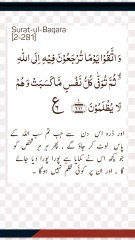 Surat-ul-Baqara
[2-281]
وَاتَّقُوْا یَوْمًا تُرْجَعُوْنَ فِیْهِ اِلَی اللّٰهِ
ثُمَّ تُوَفّٰی كُلُّ نَفْسٍ مَّا كَسَبَتْ وَهُمْ
لَا یُظْلَمُوْنَ ﴿۲۸۱﴾ ع
اور ڈرو اس دن سے جب تم سب اللہ کے
پاس لوٹ کر جاؤ گے ، پھر ہر ہر شخص کو
جو کچھ اس نے کمایا ہے پورا پورا دیا جائے
گا ، اور ان پر کوئی ظلم نہیں ہوگا ۔